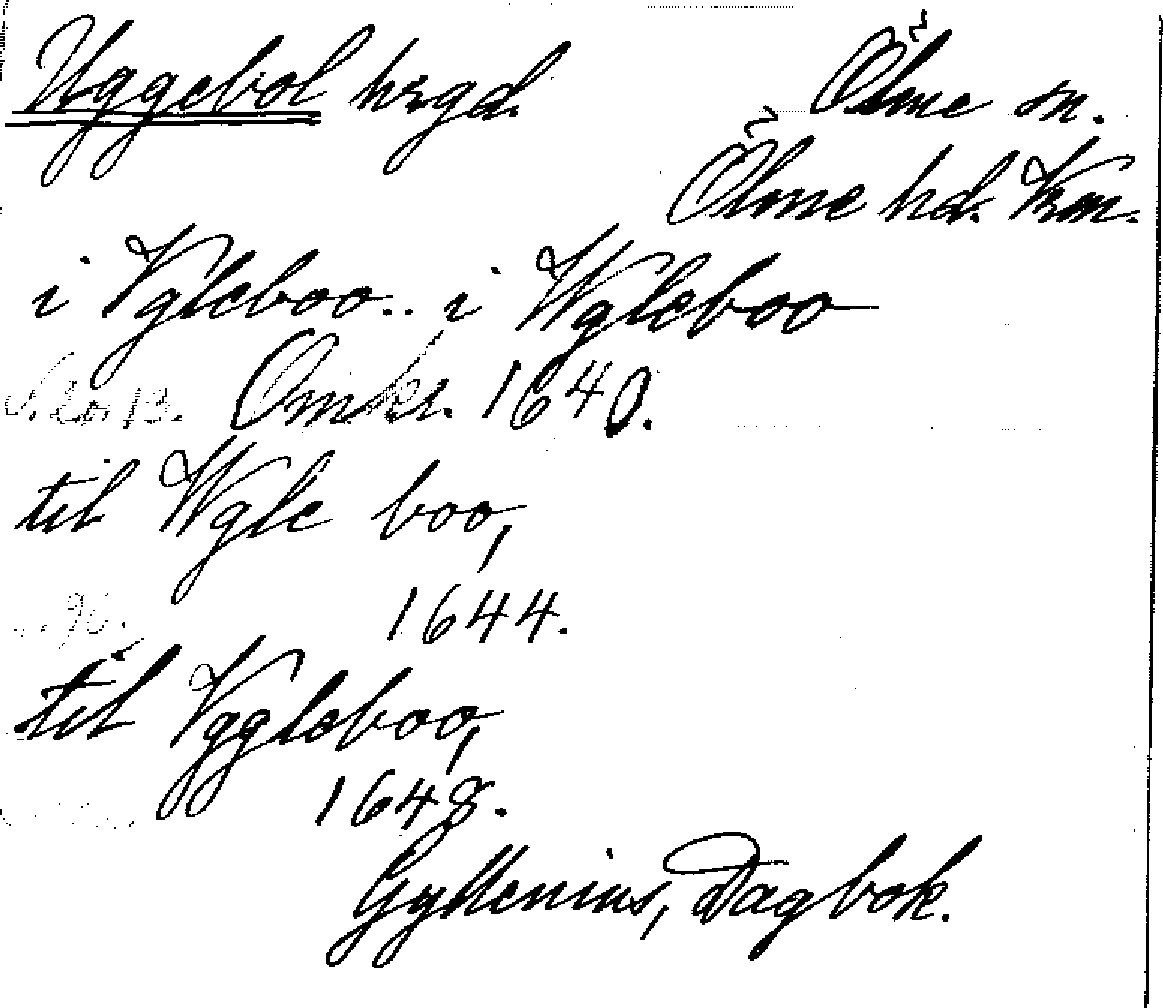 Uggebol hrgd. Ölme sn.
Ölme hd. Vrm.
i Vgleboo.. i Wgleboo
Omkr. 1640.
til Wgle boo,
1644.
til Vggleboo,
1648.
Gyllenius, Dagbok.